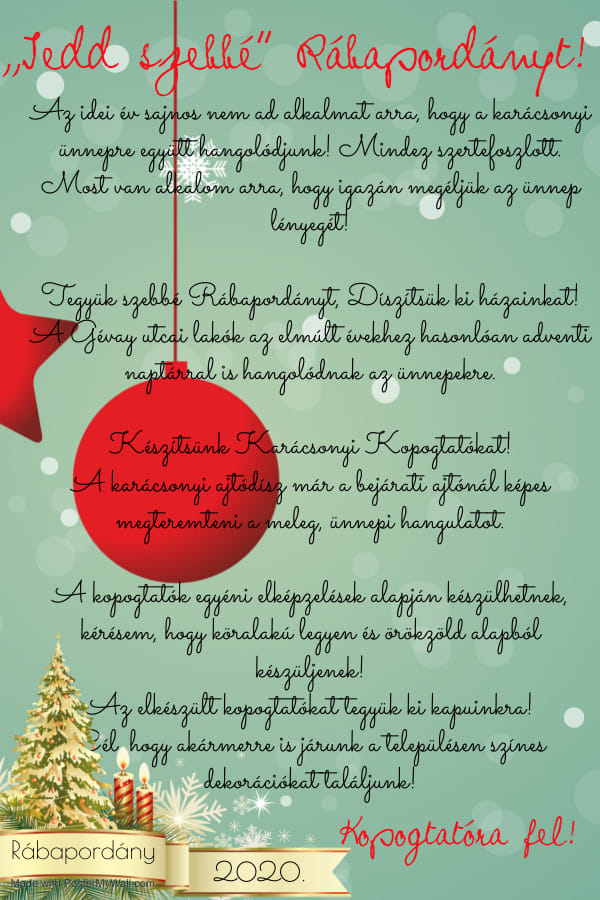 „Tedd szebbé" Rábapordányt!
Az idei év sajnos nem ad alkalmat arra, hogy a karácsonyi
ünnepre együtt hangolódjunk! Mindez szertefoszlott.
Most van alkalom arra, hogy igazán megéljük az ünnep
lényegét!
Tegyük szebbé Rábapordányt, Díszítsük ki házainkat!
A Gévay utcai lakók az elmúlt évekhez hasonlóan adventi
naptárral is hangolódnak az ünnepekre.
Készítsünk Karácsonyi Kopogtatókat!
A karácsonyi ajtódísz már a bejárati ajtónál képes
megteremteni a meleg, ünnepi hangulatot.
A kopogtatók egyéni elképzelések alapján készülhetnek,
kérésem, hogy köralakú legyen és örökzöld alapból
készüljenek!
Az elkészült kopogtatókat tegyük ki kapuinkra!
Cél, hogy akármerre is járunk a településen színes
dekorációkat találjunk!
Kopogtatóra fel!
Rábapordány
2020.
Made with PosterMyWall.com